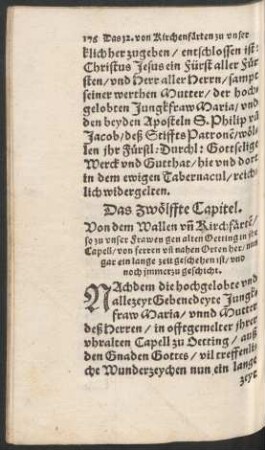 176 Das 12. von Kirchenfärten zu vnser
klich herzugeben / entschlossen ist:
Christus Jesus ein Fürst aller Für
sten / vnd Herr aller Herrn / sampt
seiner werthen Mutter / der hoch
gelobten Jungkfraw Maria / vnd
den beyden Aposteln S. Philip vñ
Jacob / deß Stiffts Patronē / wöl
len jhr Fürstl: Durchl: Gottselige
Werck vnd Gutthat / hie vnd dort
in dem ewigen Tabernacul / reich
lich widergelten.
Das Zwölffte Capitel.
Von dem Wallen vñ Kirchfärtē /
so zu vnser Frawen gen alten Oetting in jhr
Capell / von ferren vñ nahen Orten her / nun
gar ein lange zeit geschehen ist / vnd
noch jmmerzu geschicht.
NAchdem die hochgelobte vnd
allezeyt Gebenedeyte Jungk
fraw Maria / vnnd Mutter
deß Herren / in offtgemelter jhrer
vhralten Capell zu Oetting / auß
den Gnaden Gottes / vil treffenli
che Wunderzeychen nun ein lange
zeyt